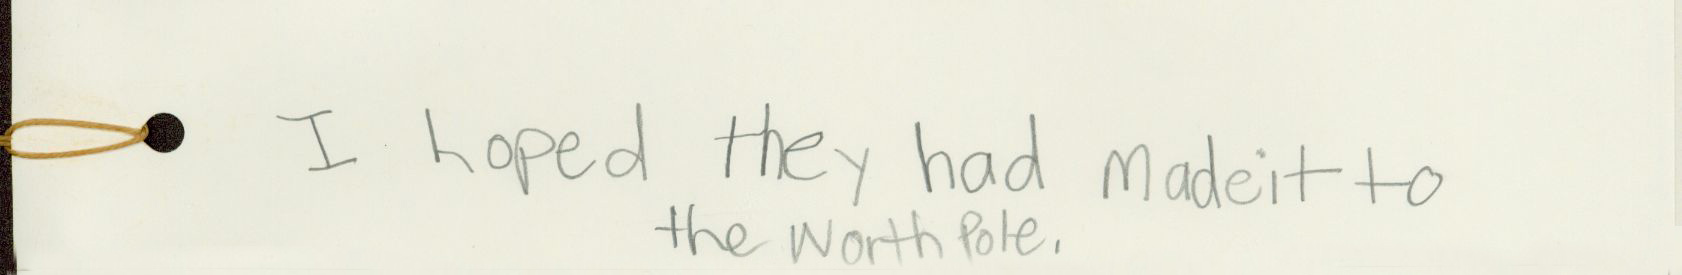 I hoped they had Madeit to
the Worth Pole.